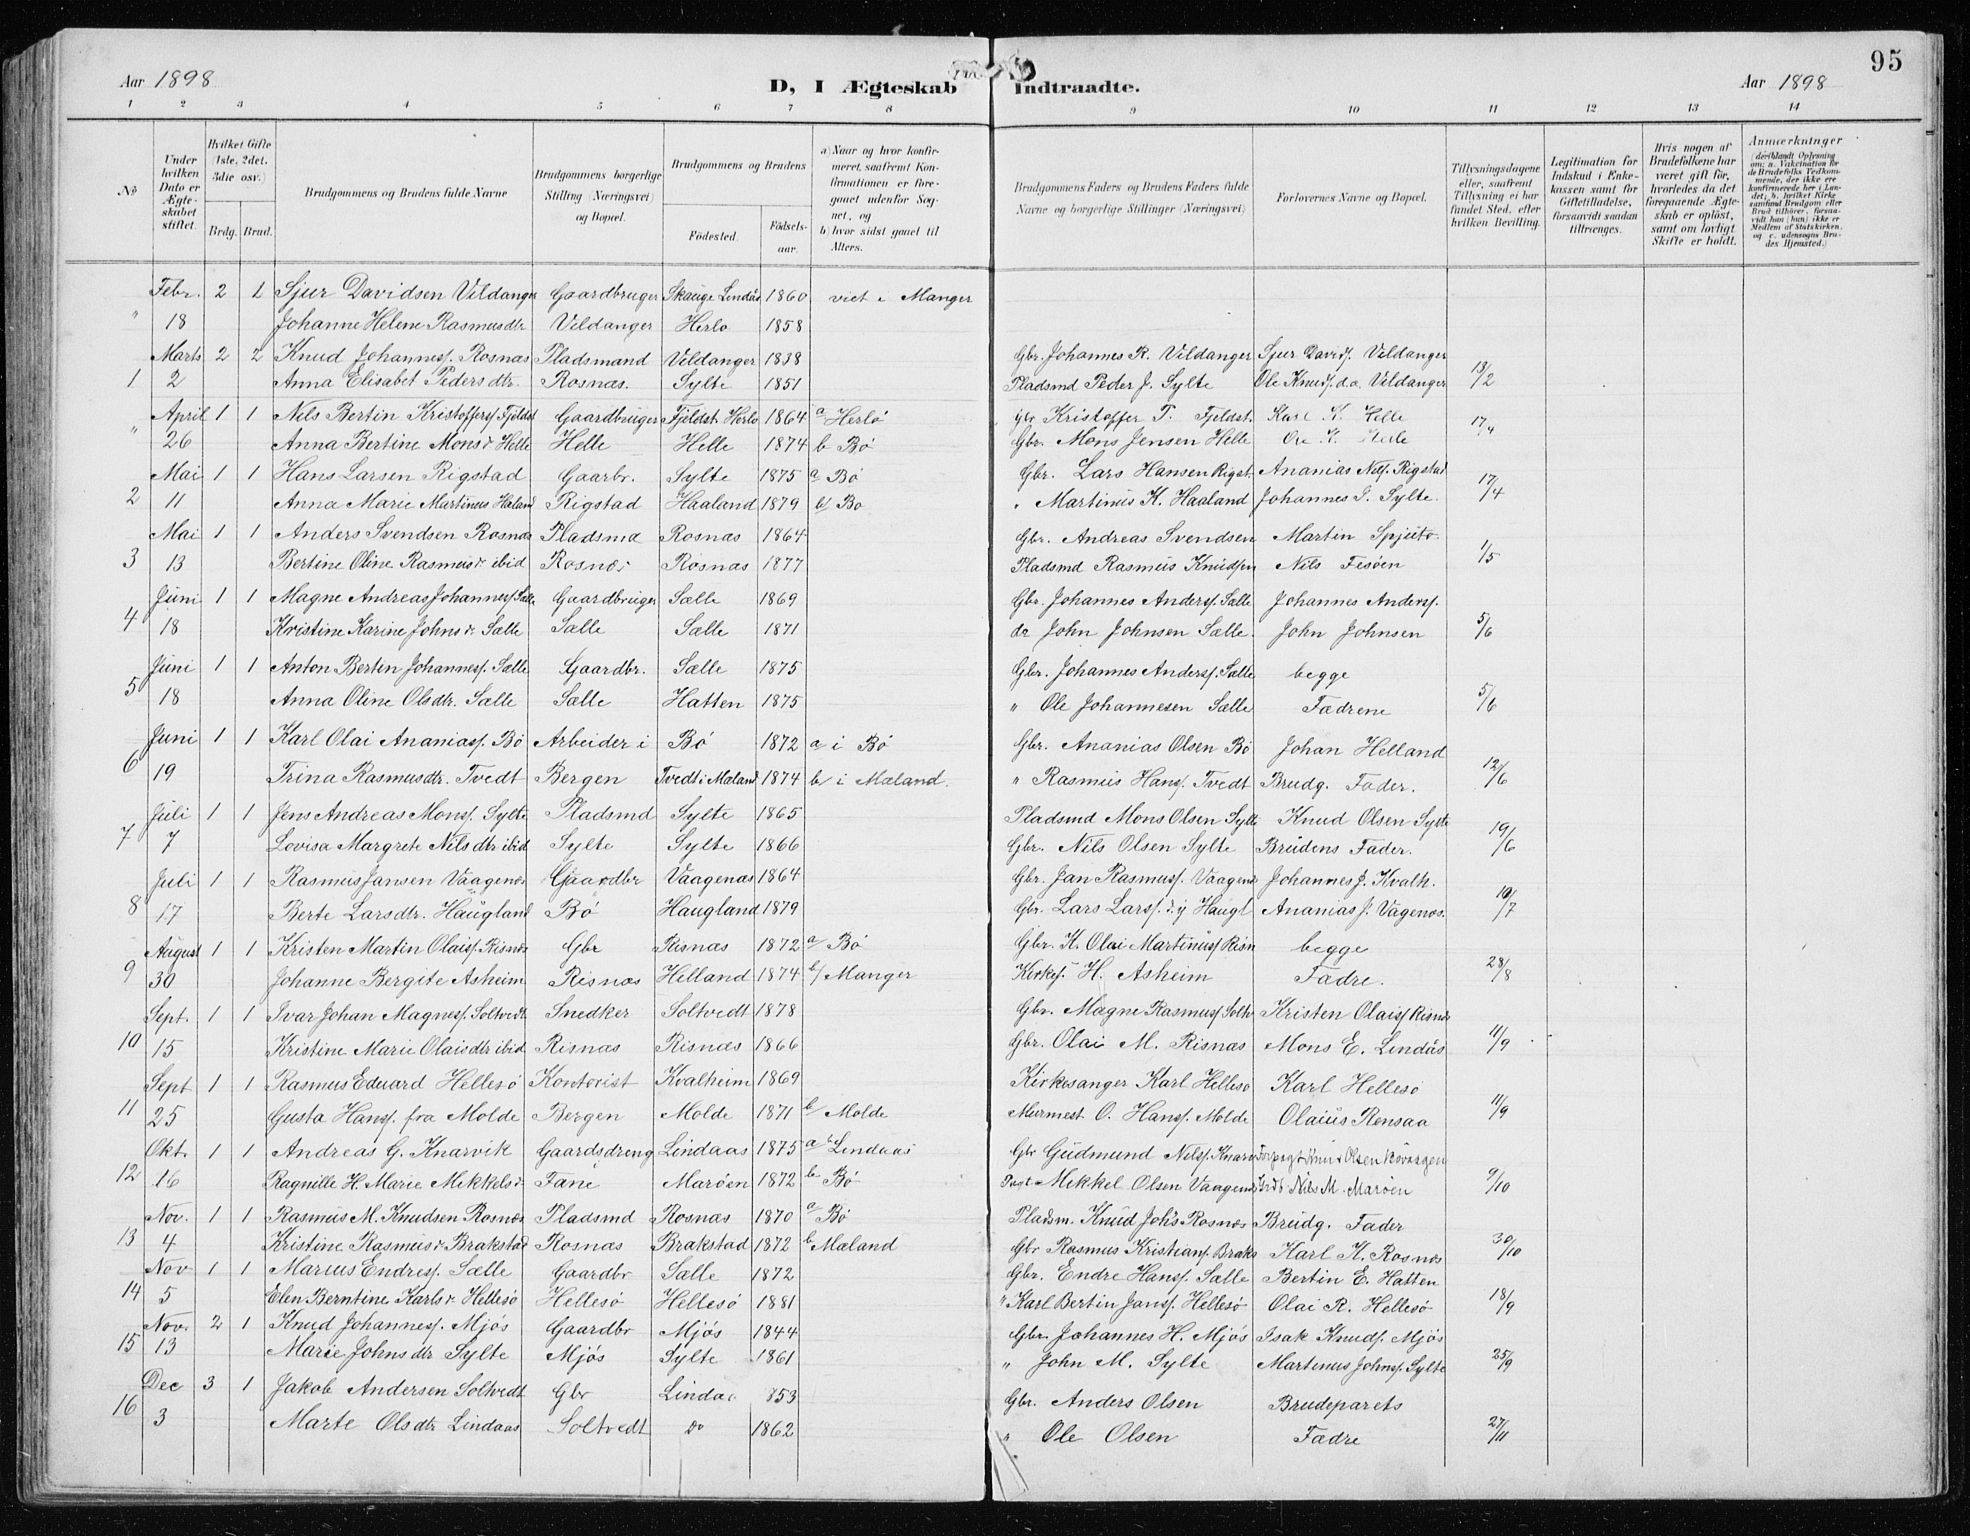 95
Aar 1898
D, I Ægteskab Indtraadte.
Aar 1898
1 2 3 4 5 6 7 8 9 10 11 12 13 14
No
Under hvilken Dato er Ægteskabet stiftet.
Hvilket Gifte (1ste, 2det. 3die osv.)
Brdg. Brud.
Brudgommens og Brudens fulde Navne
Brudgommens borgerlige Stilling (Næringsvei) og Bopæl.
Brudgommens og Brudens
Fødested.
Fødselsaar.
a) Naar og hvor konfirmeret, saafremt Konfirmationen er foregaaet udenfor Sognet, og
b) hvor sidst gaaet til Alters.
Brudgommens Faders og Brudens Faders fulde Navne og borgerlige Stillinger (Næringsvei)
Forlovernes Navne og Bopæl.
Tillysningsdagene eller, saafremt Tillysning ei har fundet Sted, efter hvilken Bevilling.
Legitimation for Indskud i Enkekassen samt for Giftetilladelse, forsaavidt saadan tiltrænges.
Hvis nogen af Brudefolkene har været gift før, hvorledes da det foregaaende Ægteskab er opløst, samt om lovligt Skifte er holdt.
Anmærkninger (deriblandt Oplysning om: a. Vakcination for de Brudefolks Vedkommende, der ikke ere konfirmerede her i Landet; b. hvilket Kirkesamfund Brudgom eller Brud tilhører, forsaavidt han (hun) ikke er Medlem af Statskirken, og c. udensogns Brudes Hjemsted.)
Febr. 2 1 Sjur Davidsen Vildanger Gaardbruger Skauge Lindås 1860 viet i Manger
" 18 Johanne Helene Rasmusdtr Vildanger Herlo 1858
Marts 2 2 Knud Johannesf. Rosnæs Pladsmand Vildanger 1838 Gbr. Johannes R. Vildanger Sjur Davidf. Vildanger
1 2 Anna Elisabet Pedersdtr. Rosnæs. Sylte 1851 Pladsmd Peder J. Sylte Ole Knudf. d.a. Vildanger 13/2
April 1 1 Nils Bertin Kristoffersf. Fjeldst Gaardbruger Fjeldst. Herlo 1864 a Herlo Gbr Kristoffer T. Fjeldst. Karl K. Helle
" 26 Anna Bertine Monsdr Helle Helle Helle 1874 b Bö Gbr. Mons Jensen Helle Ole K. Helle 17/4
Mai 1 1 Hans Larsen Rigstad Gaarbr. Sylte 1875 a Bö Gbr. Lars Hansen Rigst. Ananias Nilf. Rigstad
2 11 Anna Marie Martinus Haland Rigstad Haaland 1879 b/ Bo " Martinus K. Haaland Johannes J. Sylte. 17/4
Mai 1 1 Anders Svendsen Rosnæs Pladsmd Rosnæs 1864 Gbr. Andreas Svendsen Martin Spjuto
3 13 Bertine Oline Rasmusdr ibid Rosnæs Rosnæs 1877 Pladsmd Rasmus Knudsen Nils Fesöen 1/5
Juni 1 1 Magne Andreas Johannesf. Sælle Gaardbruger Sælle 1869 Gbr. Johannes Andersf. Sælle Johannes Andersf.
4 18 Kristine Karine Johnsdr. Sælle Sælle Sælle 1871 do John Johnsen Sælle. John Johnsen 5/6
Juni 1 1 Anton Bertin Johannesf. Sælle Gaardbr. Sælle 1875 Gbr. Johannes Andersf. Sælle begge
5 18 Anna Oline Olsdtr. Sælle Sælle Hatten 1875 " Ole Johannesen Sælle Fædrene 5/6
Juni 1 1 Karl Olai Ananiasf. Bö Arbeider i Bö 1872 a/ i Bö Gbr. Ananias Olsen Bö Johan Helland
6 19 Trina Rasmusdtr. Tvedt Bergen Tvedt i Mæland 1874 b/ i Mæland. " Rasmus Hansf. Tvedt Brudg. Fader. 12/6
Juli 1 1 Jens Andreas Monsf. Sylte Pladsmd Sylte 1865 Pladsmd Mons Olsen Sylte Knud Olsen Sylte
7 7 Lovisa Margrete Nilsdtr ibid Sylte Sylte 1866 Gbr. Nils Olsen Sylte Brudens Fader. 19/6
Juli 1 1 Rasmus Jansen Vaagenæs Gaardbr Vaagenæs 1864 Gbr. Jan Rasmusf. Vaagenæs Johannes J. Kvalh.
8 17 Berte Larsdtr. Haugland Bö Haugland 1879 Gbr. Lars Larsf. d.y Haugl Ananias J. Vågenæs. 10/7
August 1 1 Kristen Martin Olaisf. Risnæs Gbr Risnæs 1872 a/ Bö Gbr. K. Olai Martinusf Risn begge
9 30 Johanne Bergite Asheim Risnæs Helland 1874 b/ Manger Kirkes. H. Asheim Fædre. 28/8
Sept. 1 1 Ivar Johan Magnesf. Soltvedt Snedker Soltvedt 1878 Gbr. Magne Rasmusf Soltv Kristen Olaisf Risnæs
10 15 Kristine Marie Olaisdtr ibid Risnæs Risnæs 1866 Gbr. Olai M. Risnæs Mons E. Lindås 11/9
Sept 1 1 Rasmus Eduard Hellesö Kontorist Kvalheim 1869 Kirkesanger Karl Hellesö Karl Hellesö
11 25 Gusta Hansf. fra Molde Bergen Molde 1871 b/ Molde Murmest O. Hansf. Molde Olaius Rensaa 11/9
Okt. 1 1 Andreas G. Knarvik Gaardsdreng Lindaas 1875 a Lindaas Gbr Gudmund Nilsf. Knarv Olsen Bövaagen
12 16 Ragnille H. Marie Mikkelsdr Fane Maröen 1872 b Bö Mikkel Olsen Vaagenæs Nils M. Maröen 9/10
Nov. 1 1 Rasmus M. Knudsen Rosnæs Pladsmd Rosnæs 1870 a/ Bö Pladsm. Knud Johs Rosnæs Brudg. Fader
13 4 Kristine Rasmusdr Brakstad Rosnæs Brakstad 1872 b Mæland Gbr Rasmus Kristiansf. Braks Karl K. Rosnæs 30/10
Nov 1 1 Marius Endresf. Sælle Gaardbr Sælle 1872 Gbr. Endre Hansf. Sælle Bertin E. Hatten
14 5 Elen Berntine Karlsdr Hellesö Hellesö Hellesö 1881 " Karl Bertin Jansf. Hellesö Olai R. Hellesö 18/9
Nov. 2 1 Knud Johannesf. Mjös Gaardbr Mjös 1844 Gbr. Johannes H. Mjös Isak Knudf. Mjös
15 13 Marie Johnsdtr Sylte Mjös Sylte 1861 " John M. Sylte Martinus Johnsf. Sylte 25/9
Dec 3 1 Jakob Andersen Soltvedt Gbr Lindaa 853 Gbr. Anders Olsen Brudeparets
16 3 Marte Olsdtr Lindaas Soltvedt Do 1862 " Ole Olsen Fædre 27/11